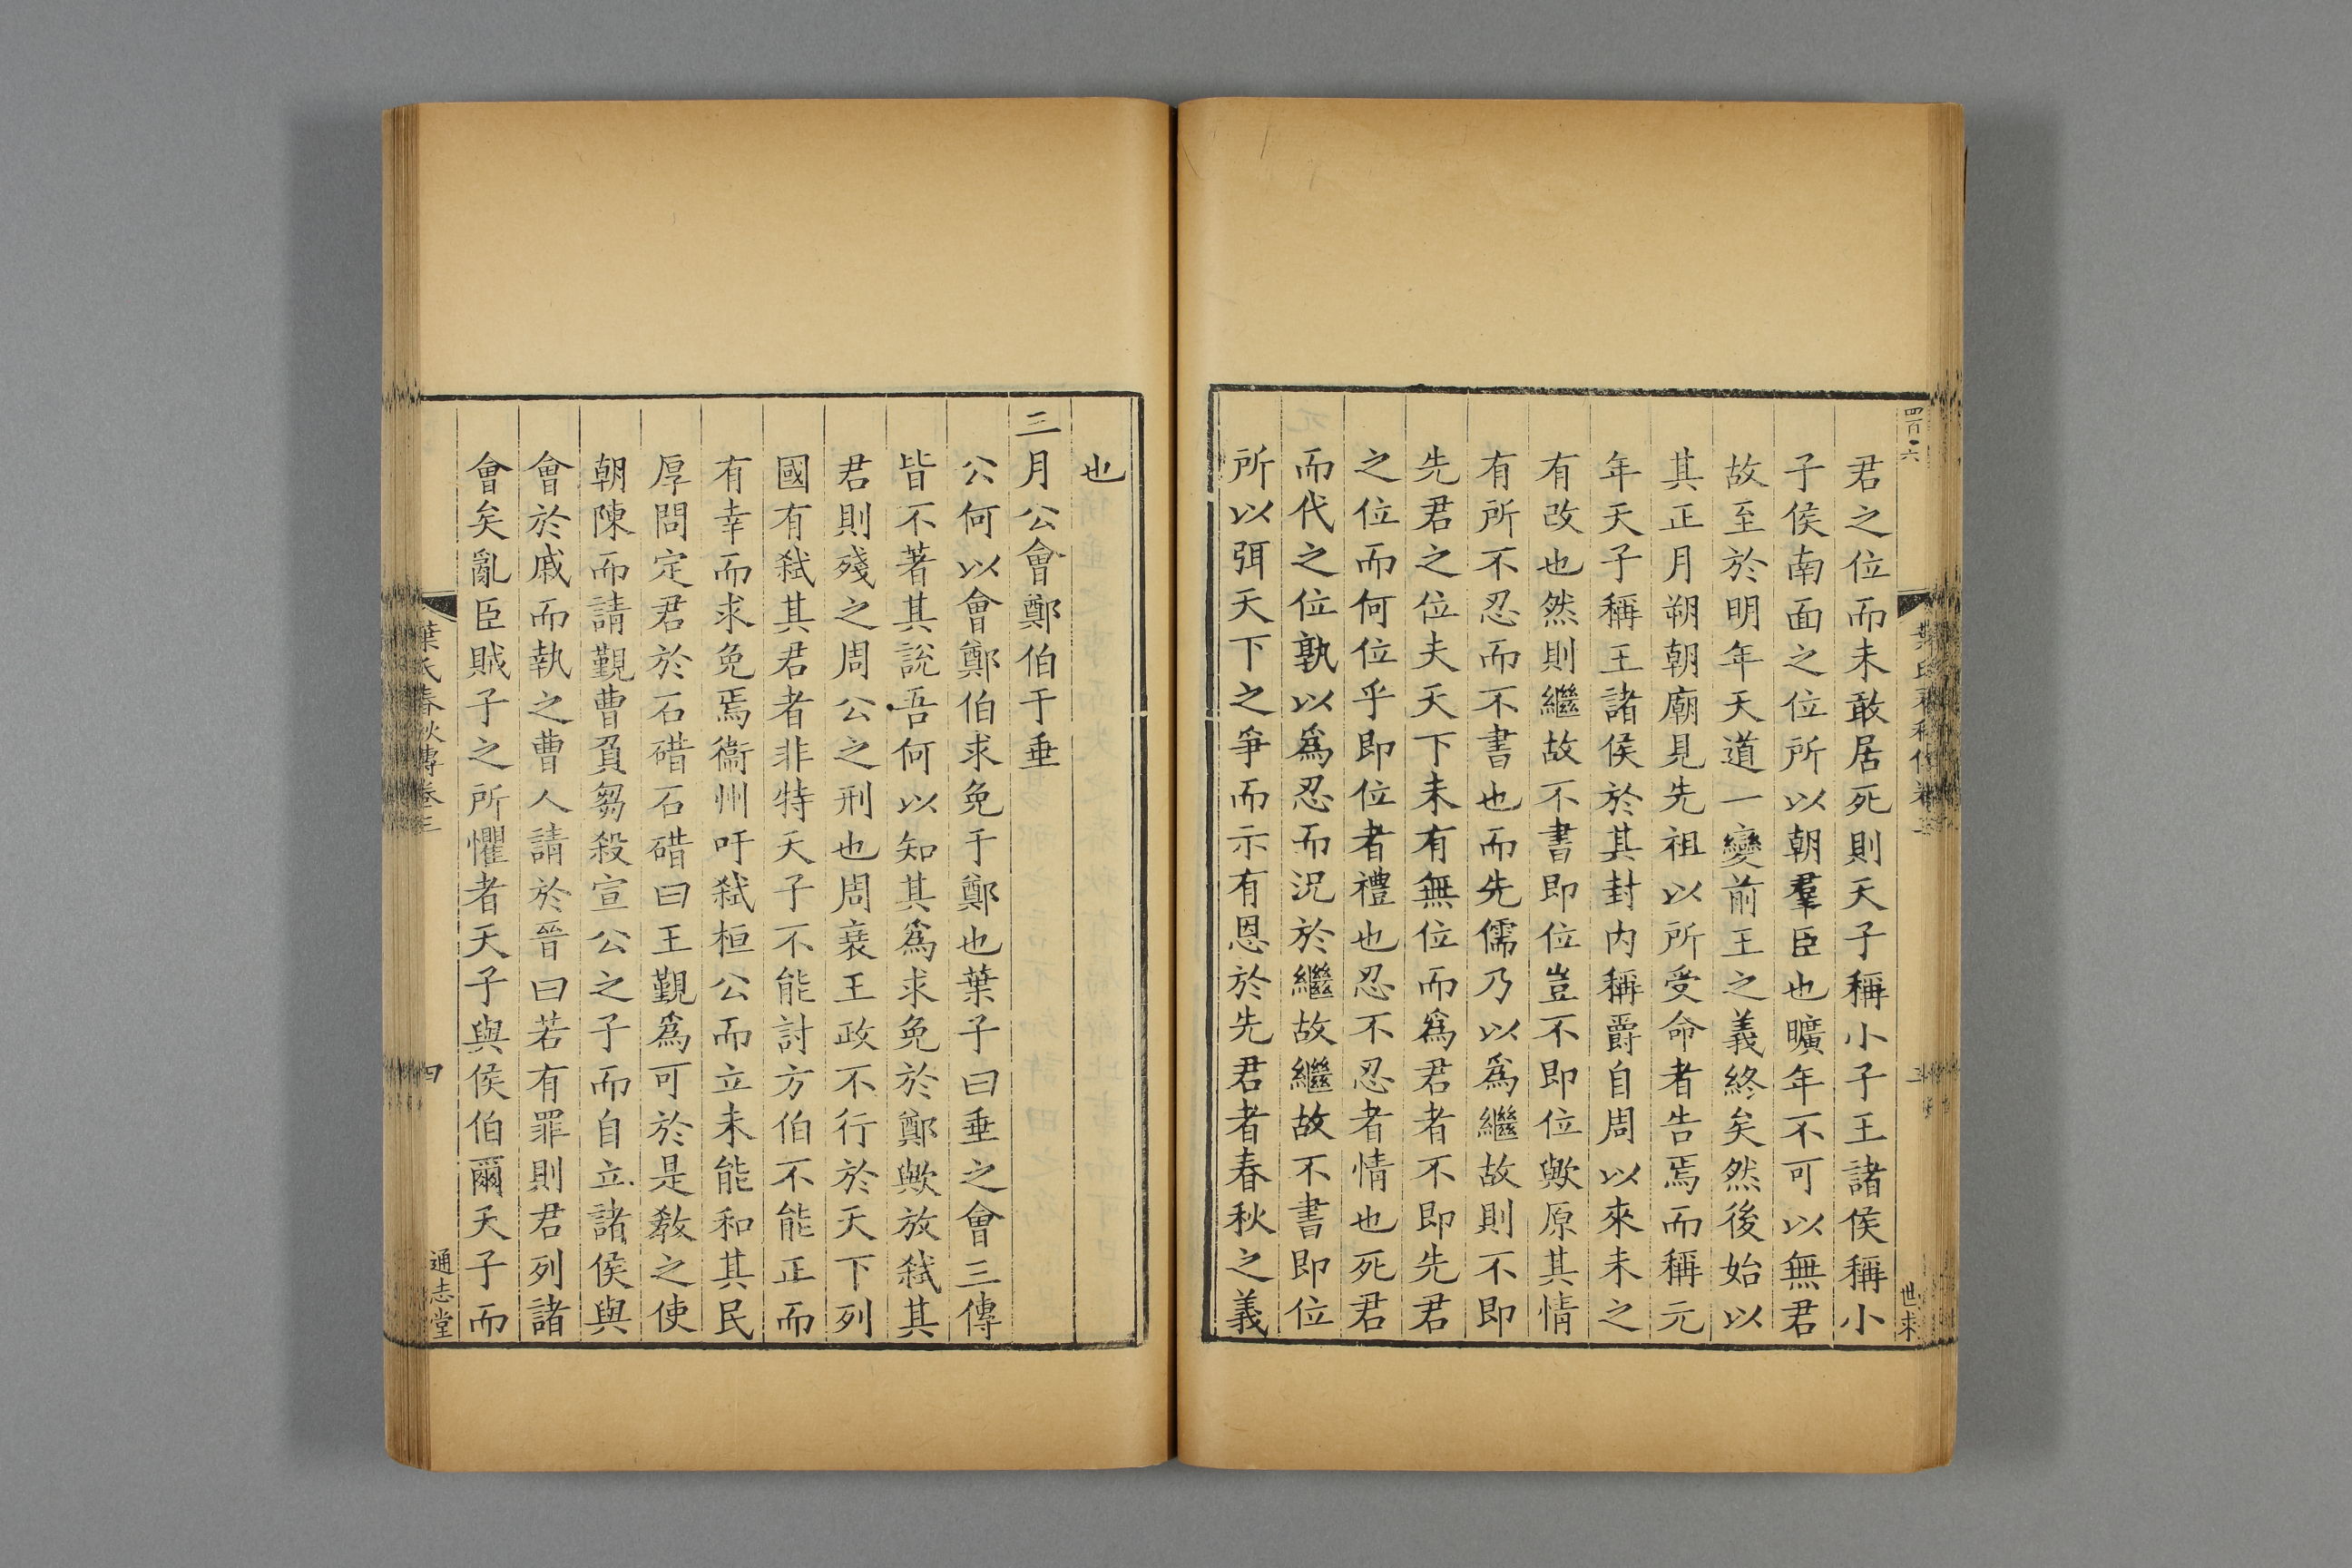 四百六
君之位而未敢居死則天子稱小子王諸侯稱小
子侯南面之位所以朝羣臣也曠年不可以無君
故至於明年天道一變前王之義終矣然後始以
其正月朔朝廟見先祖以所受命者告焉而稱元
年天子稱王諸侯於其封内稱爵自周以來未之
有改也然則繼故不書即位豈不即位歟原其情
有所不忍而不書也而先儒乃以爲繼故則不即
先君之位夫天下未有無位而爲君者不即先君
之位而何位乎即位者禮也忍不忍者情也死君
而代之位孰以爲忍而況於繼故繼故不書即位
所以弭天下之爭而示有恩於先君者春秋之義
也
三月公會鄭伯于垂
公何以會鄭伯求免于鄭也葉子曰垂之會三傳
皆不著其說吾何以知其爲求免於鄭歟放弑其
君則殘之周公之刑也周衰王政不行於天下列
國有弑其君者非特天子不能討方伯不能正而
有幸而求免焉衞州吁弑桓公而立未能和其民
厚問定君於石碏石碏曰王覲爲可於是敎之使
朝陳而請覲曹負芻殺宣公之子而自立諸侯與
會於戚而執之曹人請於晉曰若有罪則君列諸
會矣亂臣賊子之所懼者天子與侯伯爾天子而
葉氏春秋傳卷三
四
通志堂